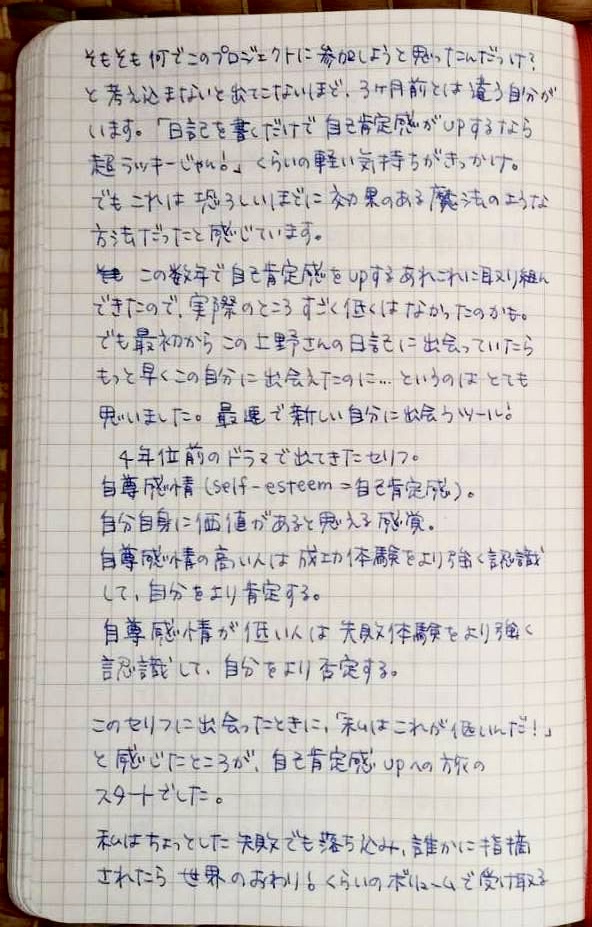 そもそも何でこのプロジェクトに参加しようと思ったんだっけ?
と考え込まないと出てこないほど、3ヶ月前とは違う自分が
います。「日記を書くだけで自己肯定感がupするなら
超ラッキーじゃん!」くらいの軽い気持ちがきっかけ。
でもこれは恐ろしいほどに効果のある魔法のような
方法だったと感じています。
この数年で自己肯定感をupするあれこれに取り組ん
できたので、実際のところすごく低くはなかったのかも。
でも最初からこの上野さんの日記に出会っていたら
もっと早くこの自分に出会えたのに…というのはとても
思いました。最速で新しい自分に出会うツール!
4年位前のドラマで出てきたセリフ。
自尊感情(self-esteem=自己肯定感)。
自分自身に価値があると思える感覚。
自尊感情の高い人は成功体験をより強く認識
して、自分をより肯定する。
自尊感情が低い人は失敗体験をより強く
認識して、自分をより否定する。
このセリフに出会ったときに、「私はこれが低いんだ!」
と感じたところが、自己肯定感upへの旅の
スタートでした。
私はちょっとした失敗でも落ち込み、誰かに指摘
されたら世界のおわり!くらいのボリュームで受け取る